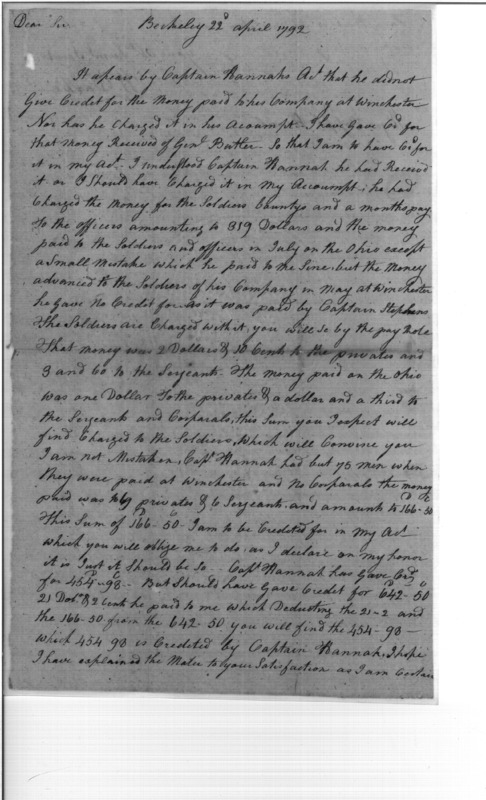 Dear Sir Berkeley 22d april 1792
It apears by Captain Hannahs Act that he did not
Give Credit for the Money paid to his Company at Winchester
Nor has he Charged it in his Acoumpt - I have Gave Cd for
that money Received of Genl Butler. So that I am to have Cd for
it in my Act. I understood Captain Hannah he had Received
it or I Should have Charged it in My Accoumpt; he had
Charged the Money for the Soldiers bountys and a months pay
to the officers amounting to 819 Dollars and the money
paid to the Soldiers and officers in July on the Ohio except
a Small Mistake which he paid to me Sine, but the Money
advanced to the Soldiers of his Company in May at Winchester
he gave no Credit for as it was paid by Captain Stephens
The Soldiers are Charged with it, you will Se by the pay Role
That money was 2 Dollars & 10 Cents to the privates and
3 and 60 to the Serjeants. The money paid on the Ohio
was one Dollar to the privates & a dollar and a third to
the Serjeants and Corparals, this Sum you I expect will
find Charged to the Soldiers, Which will Convine you
I am not Mistaken, Capt Hannah had but 75 men when
they were paid at Winchester and no Corparals the money
paid was to 69 privates & 6 Serjeants, and amounts to 166-50
This Sum of 166-50- I am to be Credited for in My Act
which you will oblige me to do, as I declare on my honor
it is Just it Should be So - Capt Hannah has Gave Cred
for 454-98 - But Should have Gave Credit for 642-50
21 Dolrs & 2 Cents he paid to me which Deducting the 21-2 and
the 166-50 from the 642-50 you will find the 454-98 -
which 454 98 is Credited by Captain Hannah, I hope
I have explained the Mater to your Satisfaction as I am Certain